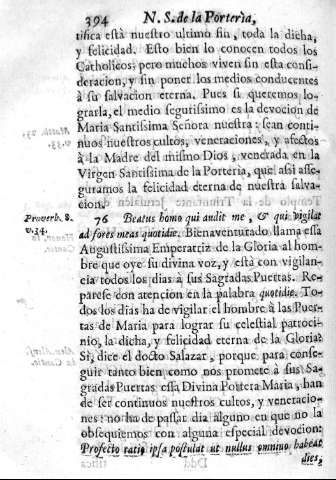 394 N. S. de la Porterìa,
tifica està nuestro ultimo fin, toda la dicha,
y felicidad. Esto bien lo conocen todos los
Catholicos; pero muchos viven sin esta consi-
deracion, y sin poner los medios conducentes
à su salvacion eterna. Pues si queremos lo-
grarla, el medio segurissimo es la devocion de
Maria Santissima Señora nuestra: sean conti-
nuos nuestros cultos, veneraciones, y afectos
à la Madre del mismo Dios, venerada en la
Virgen Santissima de la Porteria, que assi asse-
guramos la felicidad eterna de nuestra salva-
cion.
Proverb. 8.
v. 34.
76 Beatus homo qui audit me, & qui vigilat
ad fores meas quotidie. Bienaventurado llama essa
Augustissima Emperatriz de la Gloria al hom-
bre que oye su divina voz, y està con vigilan-
cia todos los dias à sus Sagradas Puertas. Re-
parese con atencion en la palabra quotidie. To-
dos los dias ha de vigilar el hombre à las Puer-
tas de Maria para lograr su celestial patroci-
nio, la dicha, y felicidad eterna de la Gloria?
Si, dice el docto Salazar, porque para conse-
guir tanto bien como nos promete à sus Sa-
gradas Puertas essa Divina Portera Maria, han
de ser continuos nuestros cultos, y veneracio-
nes: no ha de passar dia alguno en que no la
obsequiemos con alguna especial devocion:
Profecto ratio ipsa postulat ut nullus omnino habeat
dies,